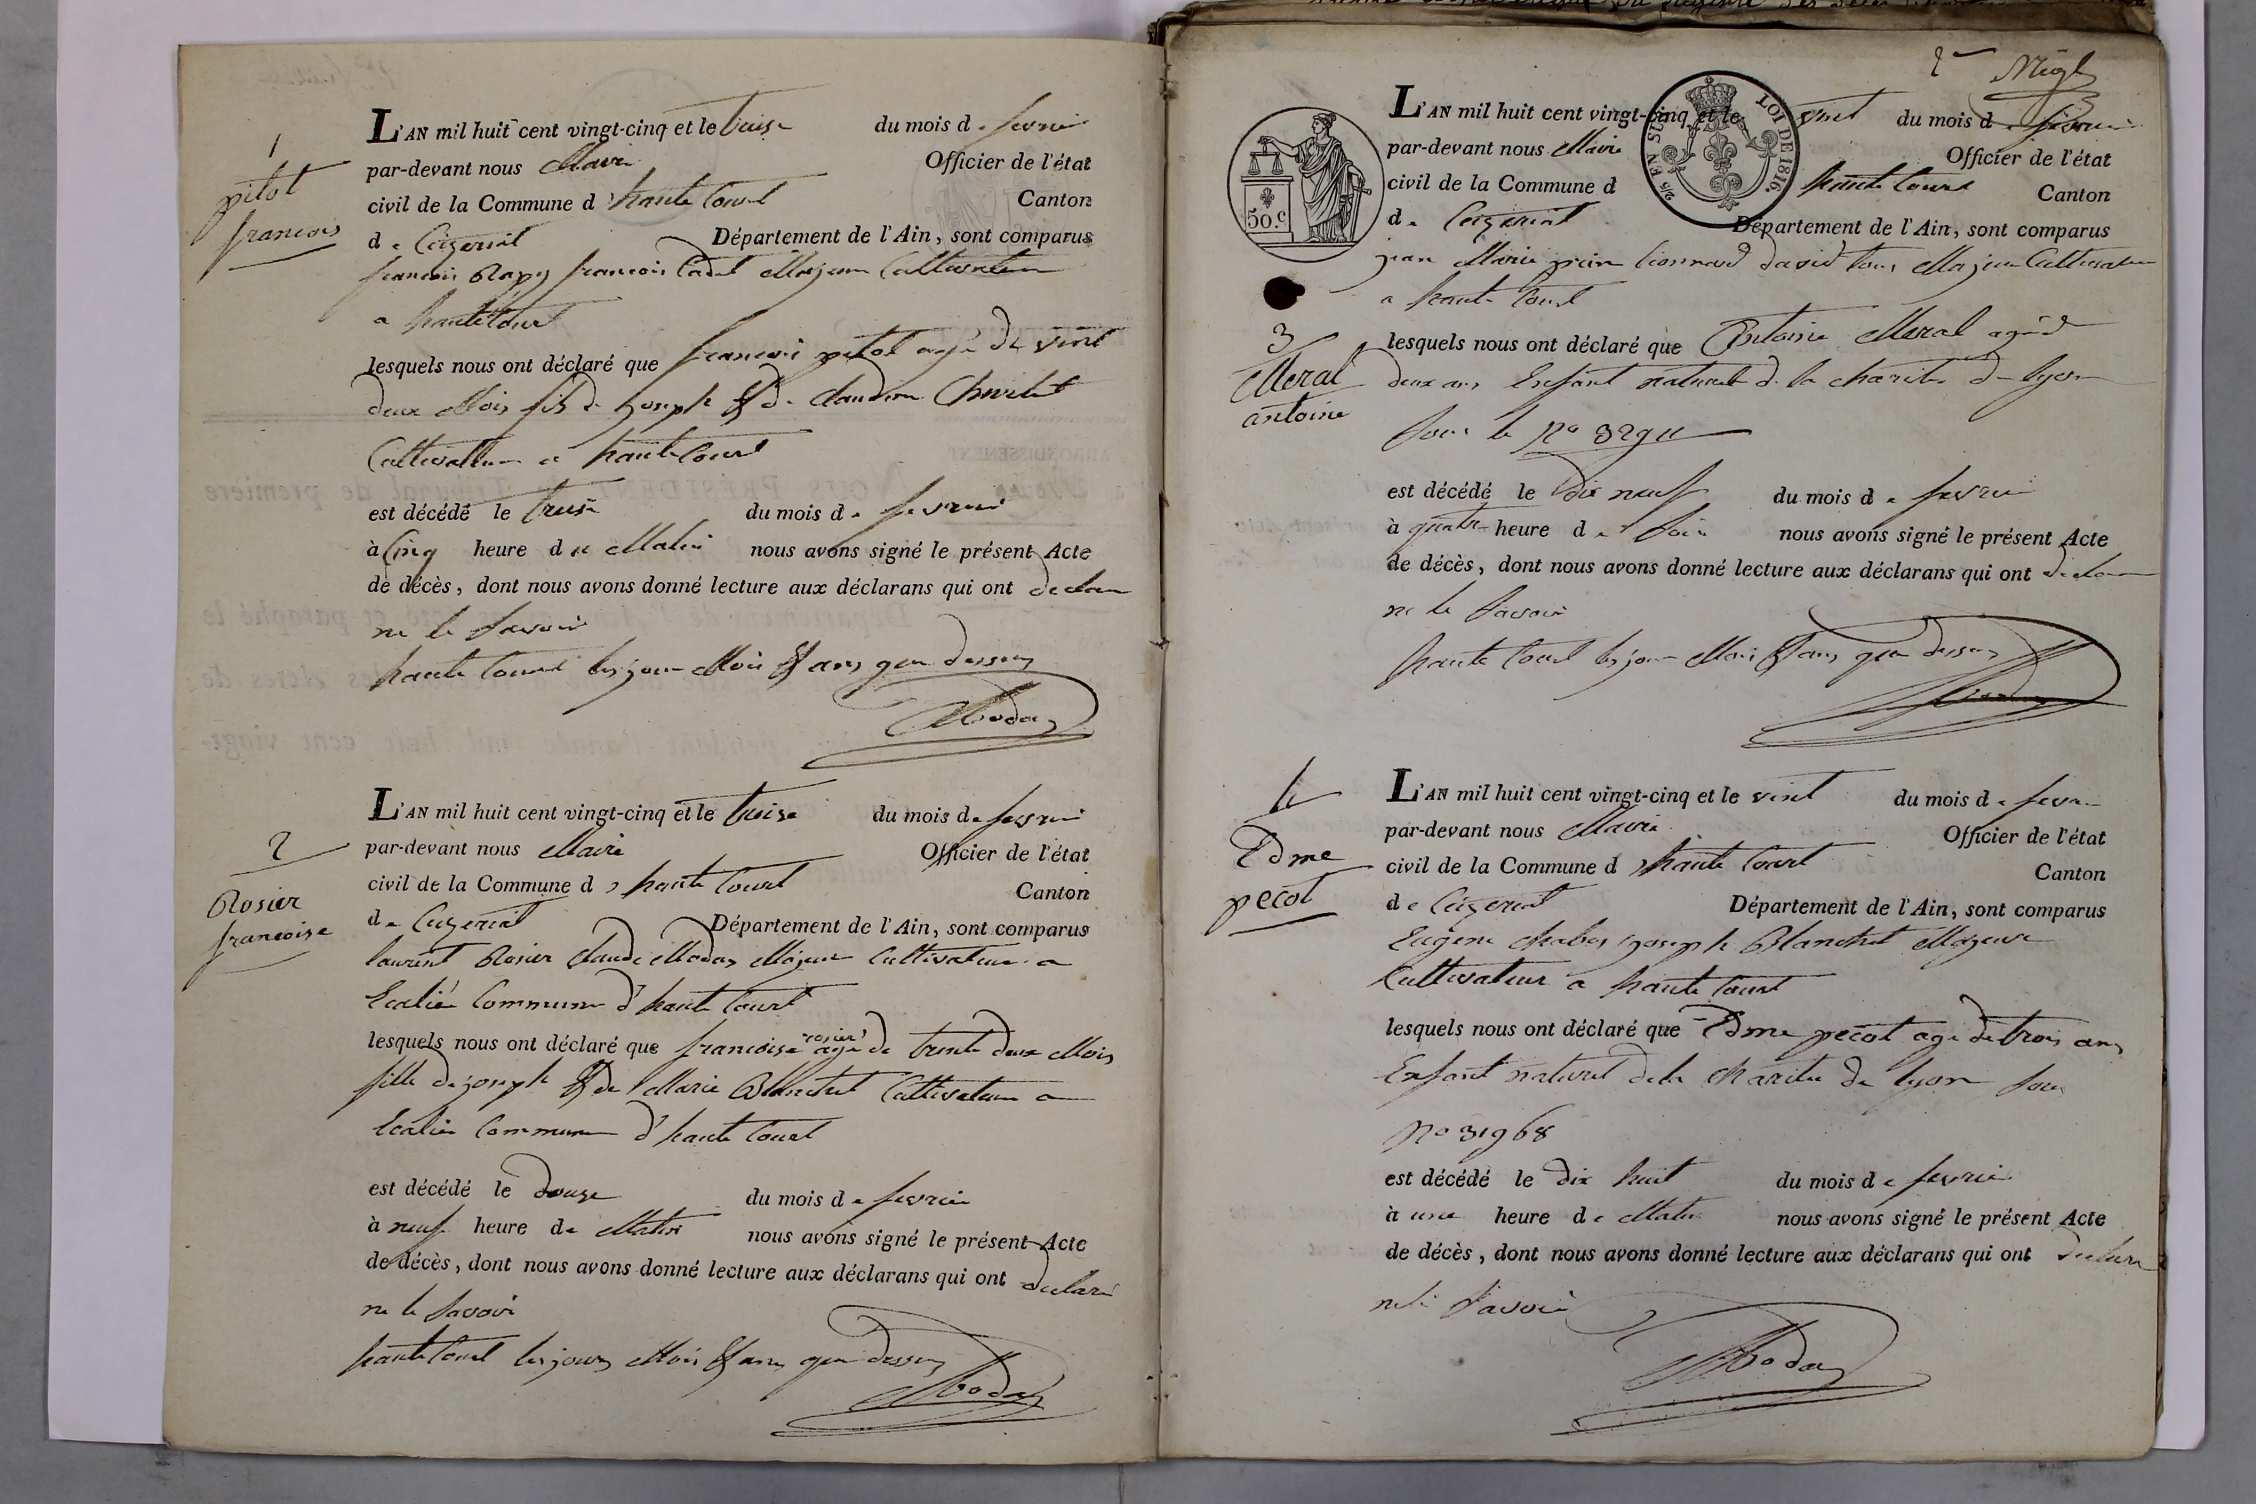 1
pitot
francois
L'AN mil huit cent vingt-cinq et le treise du mois de fevrie
par-devant nous Maire Officier de l'état
civil de la Commune d haute Court Canton
de Ceizeriat Département de l'Ain, sont comparus
francois Rapy francois Cadet Majeur Cultivateur
a haute Court
lesquels nous ont déclaré que francois pitot agé de vint
deux Mois fils de Joseph & de Claudine
Cultivateur a haute Court
est décédé le treise du mois de fevrie
à Cinq heure du Matin nous avons signé le présent Acte
de décès, dont nous avons donné lecture aux déclarans qui ont declare
ne le savoir
haute Court les jour Mois & ans que dessus
Moday
2
Rosier
francoise
L'AN mil huit cent vingt-cinq et le treise du mois de fevrie
par-devant nous Maire Officier de l'état
civil de la Commune d haute Court Canton
de Ceizeriat Département de l'Ain, sont comparus
laurent Rosier Claude Moday Majeur Cultivateur a
Commune d'haute Court
lesquels nous ont déclaré que francoise rosier agé de trente deux Mois
fille de joseph & de Marie Blanchet Cultivateur a
Commune d'haute Court
est décédé le douze du mois de fevrie
à neuf heure de Matin nous avons signé le présent Acte
de décès, dont nous avons donné lecture aux déclarans qui ont declaré
ne le savoir
haute Court les jours Mois & ans que dessus
Moday
2
50.c
25 EN SUS
LOI DE 1816.
3
Meral
antoine
L'AN mil huit cent vingt-cinq et le vint du mois de fevrie
par-devant nous Maire Officier de l'état
civil de la Commune d haute Court Canton
de Ceizeriat Département de l'Ain, sont comparus
jean Marie lionnard david tous Majeur Cultivateur
a haute Court
lesquels nous ont déclaré que Antoine Meral agé de
deux ans Enfant naturel de la charite de lyon
sous le No
est décédé le dix neuf du mois de fevrie
à quatre heure de soir nous avons signé le présent Acte
de décès, dont nous avons donné lecture aux déclarans qui ont declare
ne le savoir
haute Court les jour Mois & ans que dessus
Moday
4
Edme
pecot
L'AN mil huit cent vingt-cinq et le vint du mois de fevrie
par-devant nous Maire Officier de l'état
civil de la Commune d haute Court Canton
de Ceizeriat Département de l'Ain, sont comparus
Eugene joseph Blanchet Majeur
Cultivateur a haute Court
lesquels nous ont déclaré que Edme pecot agé de trois ans
Enfant naturel de la charite de lyon sous
No 31968
est décédé le dix huit du mois de fevrie
à une heure de Matin nous avons signé le présent Acte
de décès, dont nous avons donné lecture aux déclarans qui ont declare
ne le savoir
Moday